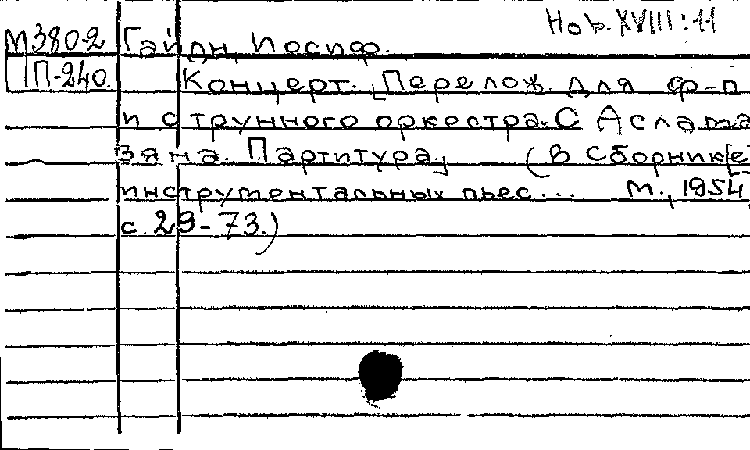 Hob. XVIII:11
М3802 Гайдн, Иосиф.
П-240. Концерт. [Перелож. для ф-п
и струнного оркестра С. Аслама
зяна. Партитура] (В сборник[е]
инструментальных пьес... М., 1954,
с. 29-73.)